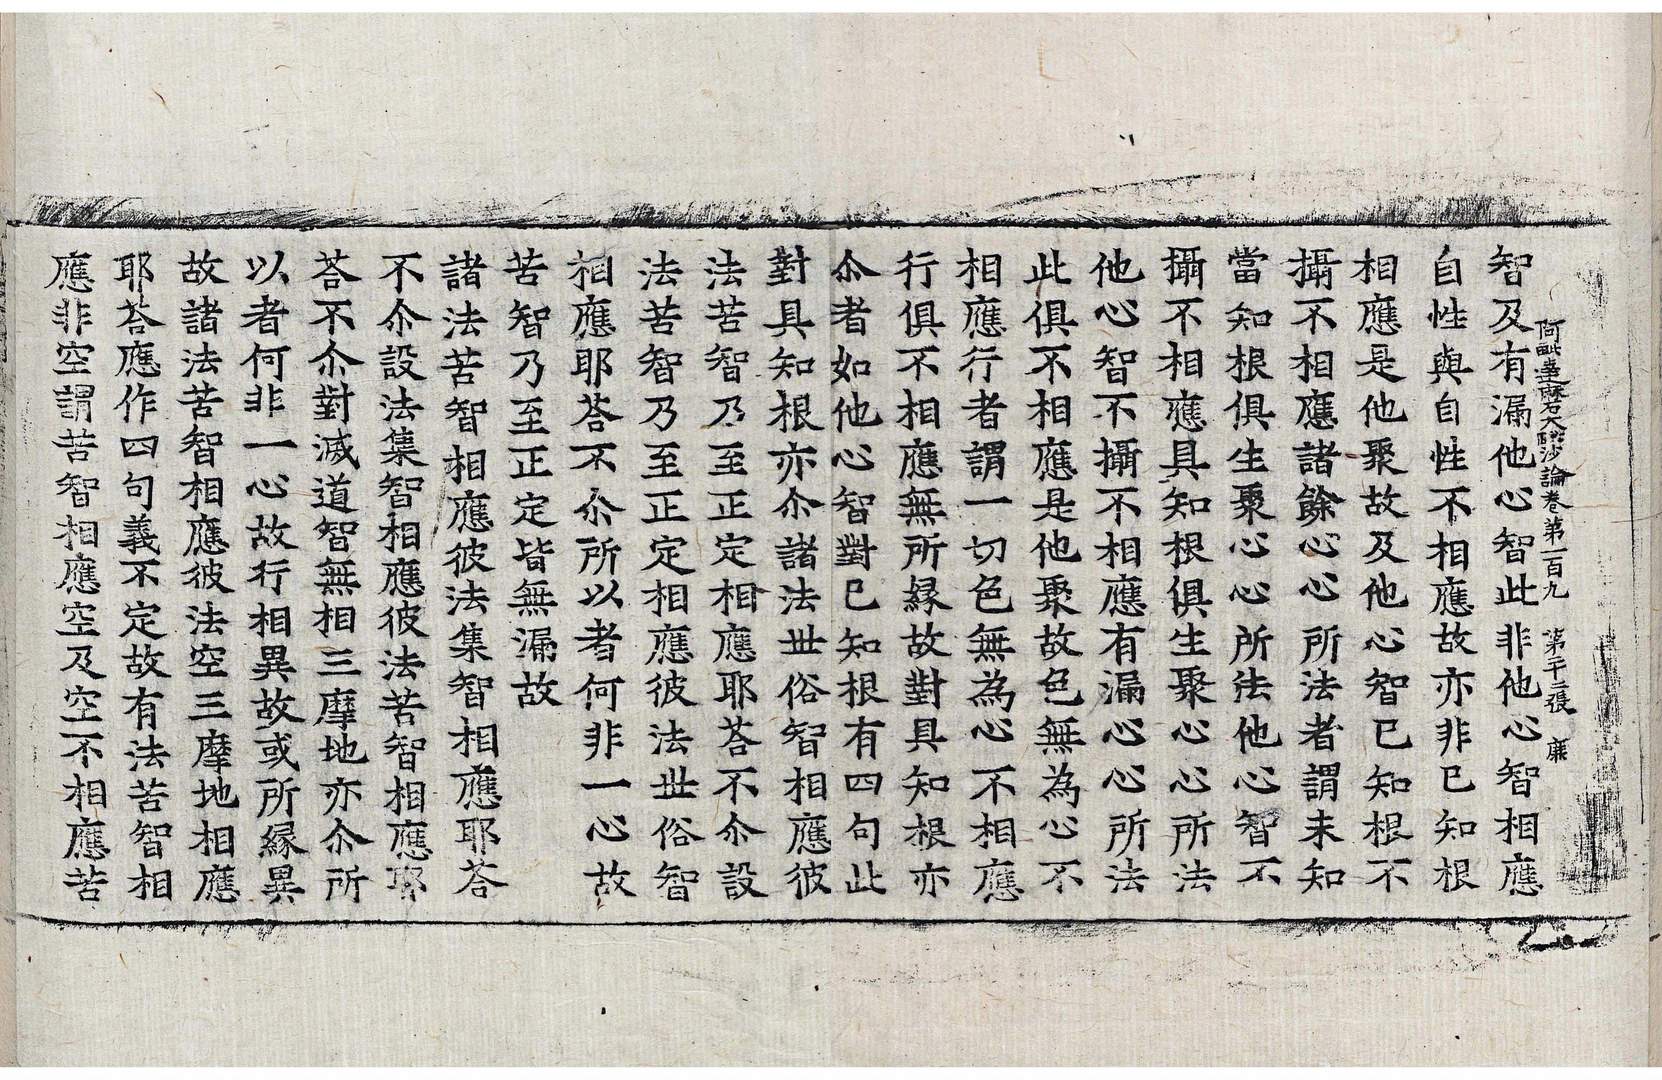 阿毗達磨大毗沙論卷第一百九 第二十張 廉
智及有漏他心智此非他心智相應
自性與自性不相應故亦非已知根
相應是他聚故及他心智已知根不
攝不相應諸餘心心所法者謂未知
當知根俱生聚心心所法他心智不
攝不相應具知根俱生聚心心所法
他心智不攝不相應有漏心心所法
此俱不相應是他聚故色無為心不
相應行者謂一切色無為心不相應
行俱不相應無所緣故對具知根亦
尒者如他心智對已知根有四句此
對具知根亦尒諸法世俗智相應彼
法苦智乃至正定相應耶荅不尒設
法苦智乃至正定相應彼法世俗智
相應耶荅不尒所以者何非一心故
苦智乃至正定皆無漏故
諸法苦智相應彼法集智相應耶荅
不尒設法集智相應彼法苦智相應耶
荅不尒對滅道智無相三摩地亦尒所
以者何非一心故行相異故或所緣異
故諸法苦智相應彼法空三摩地相應
耶荅應作四句義不定故有法苦智相
應非空謂苦智相應空及空不相應苦